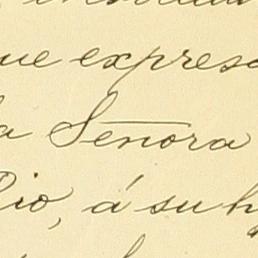 que expresa
la Señora
Pio, á su h